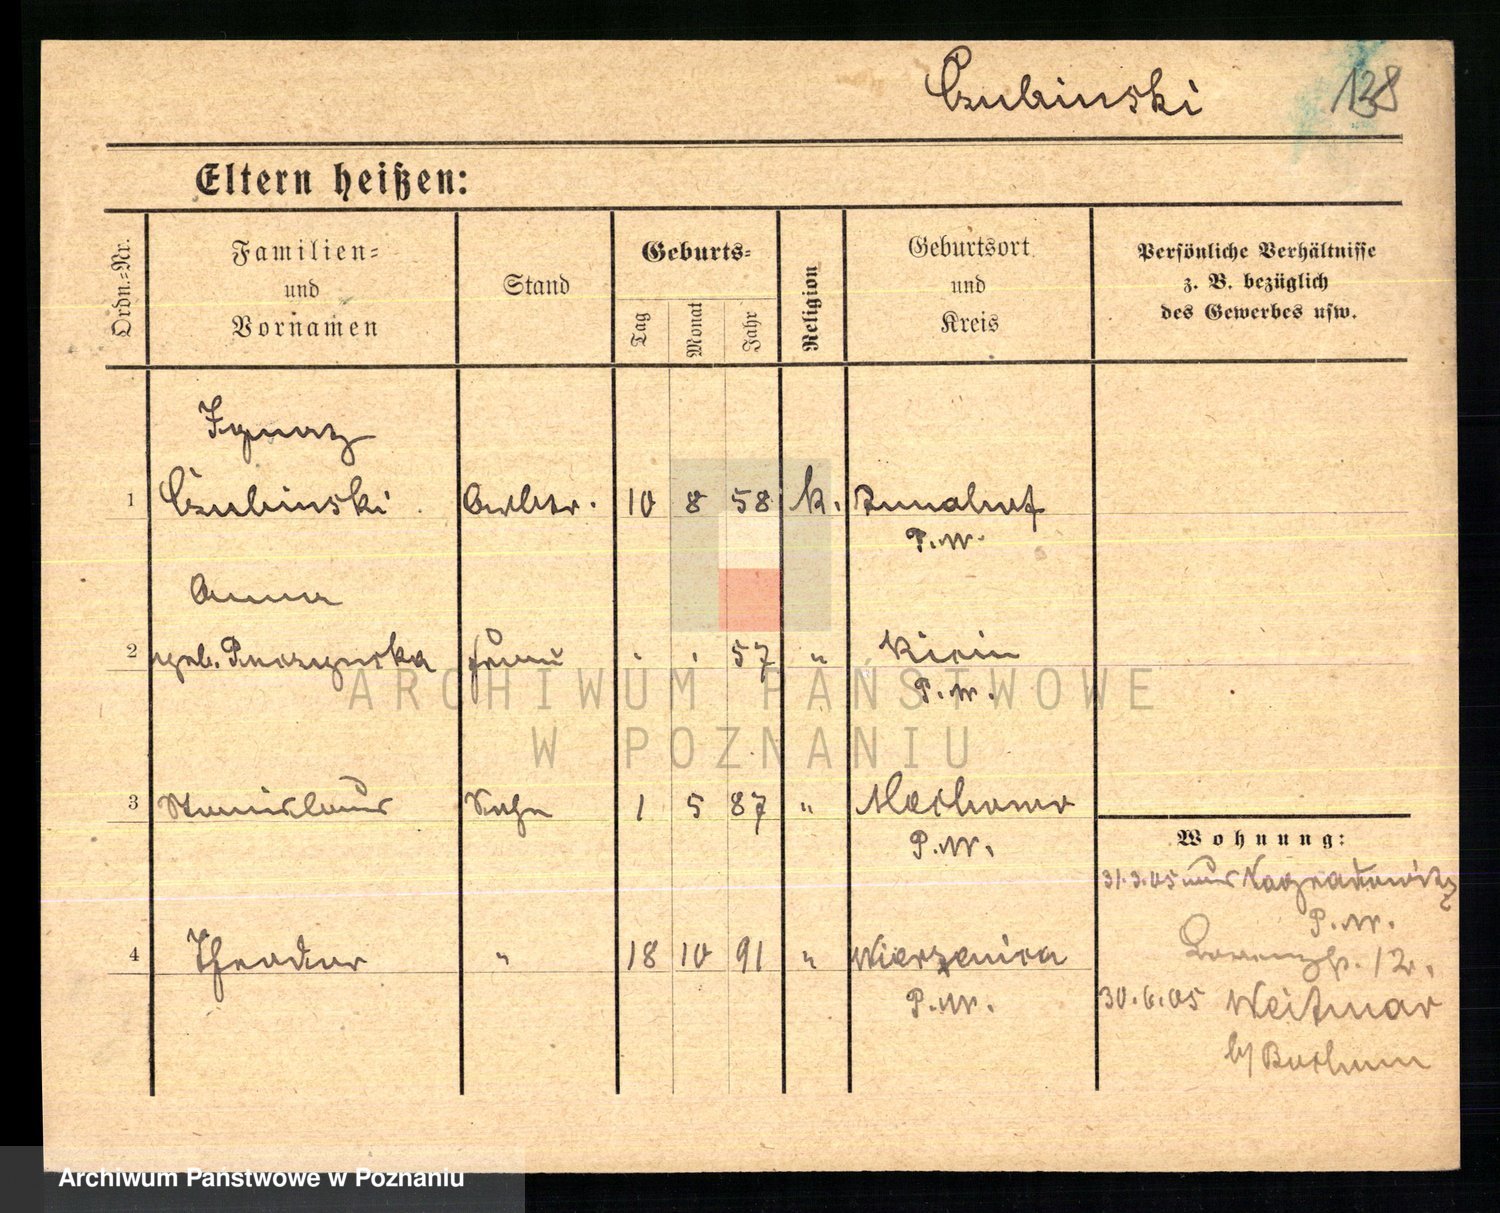 Czubinski 138
Eltern heißen:
Ordn.-Nr.
Familien-
und
Vornamen
Stand
Geburts-
Tag Monat Jahr
Religion
Geburtsort
und
Kreis
Persönliche Verhältnisse
z. B. bezüglich
des Gewerbes usw.
Ignatz
1 Czubinski 10 8 58 k.
P.W.
Anna
2 geb. Frau . . 57 "
P.W.
ARCHIWUM PAŃSTWOWE
W POZNANIU
3 Stanislaus Sohn 1 5 87 "
P.W.
Wohnung:
31.3.05 aus
P.W.
4 Theodor " 18 10 91 " Wierzenica
P.W.
12.
30.6.05 Weitmar
b/ Bochum
Archiwum Państwowe w Poznaniu